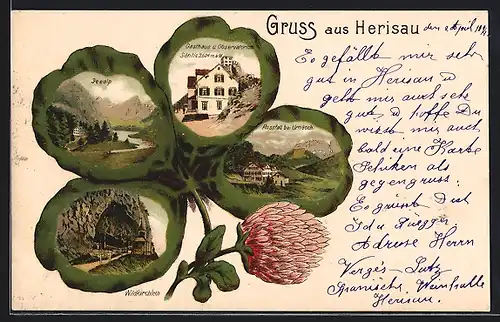 Gruss aus Herisau
den 2 April 189
Gasthaus u. Observatorium
Säntis 2504 m ü M
Seealp
Rossfall bei Urnäsch
Wildkirchlein
Es gefällt mir sehr
gut in Herisau u
geht mir auch sehr
gut, u hoffe Du
wirst mir auch
bald eine Karte
schiken als
gegengruss.
Es grüsst Dich
Ida Rüegger
Adresse Herrn
Vergés-
Spanische Weinhalle
Herisau.